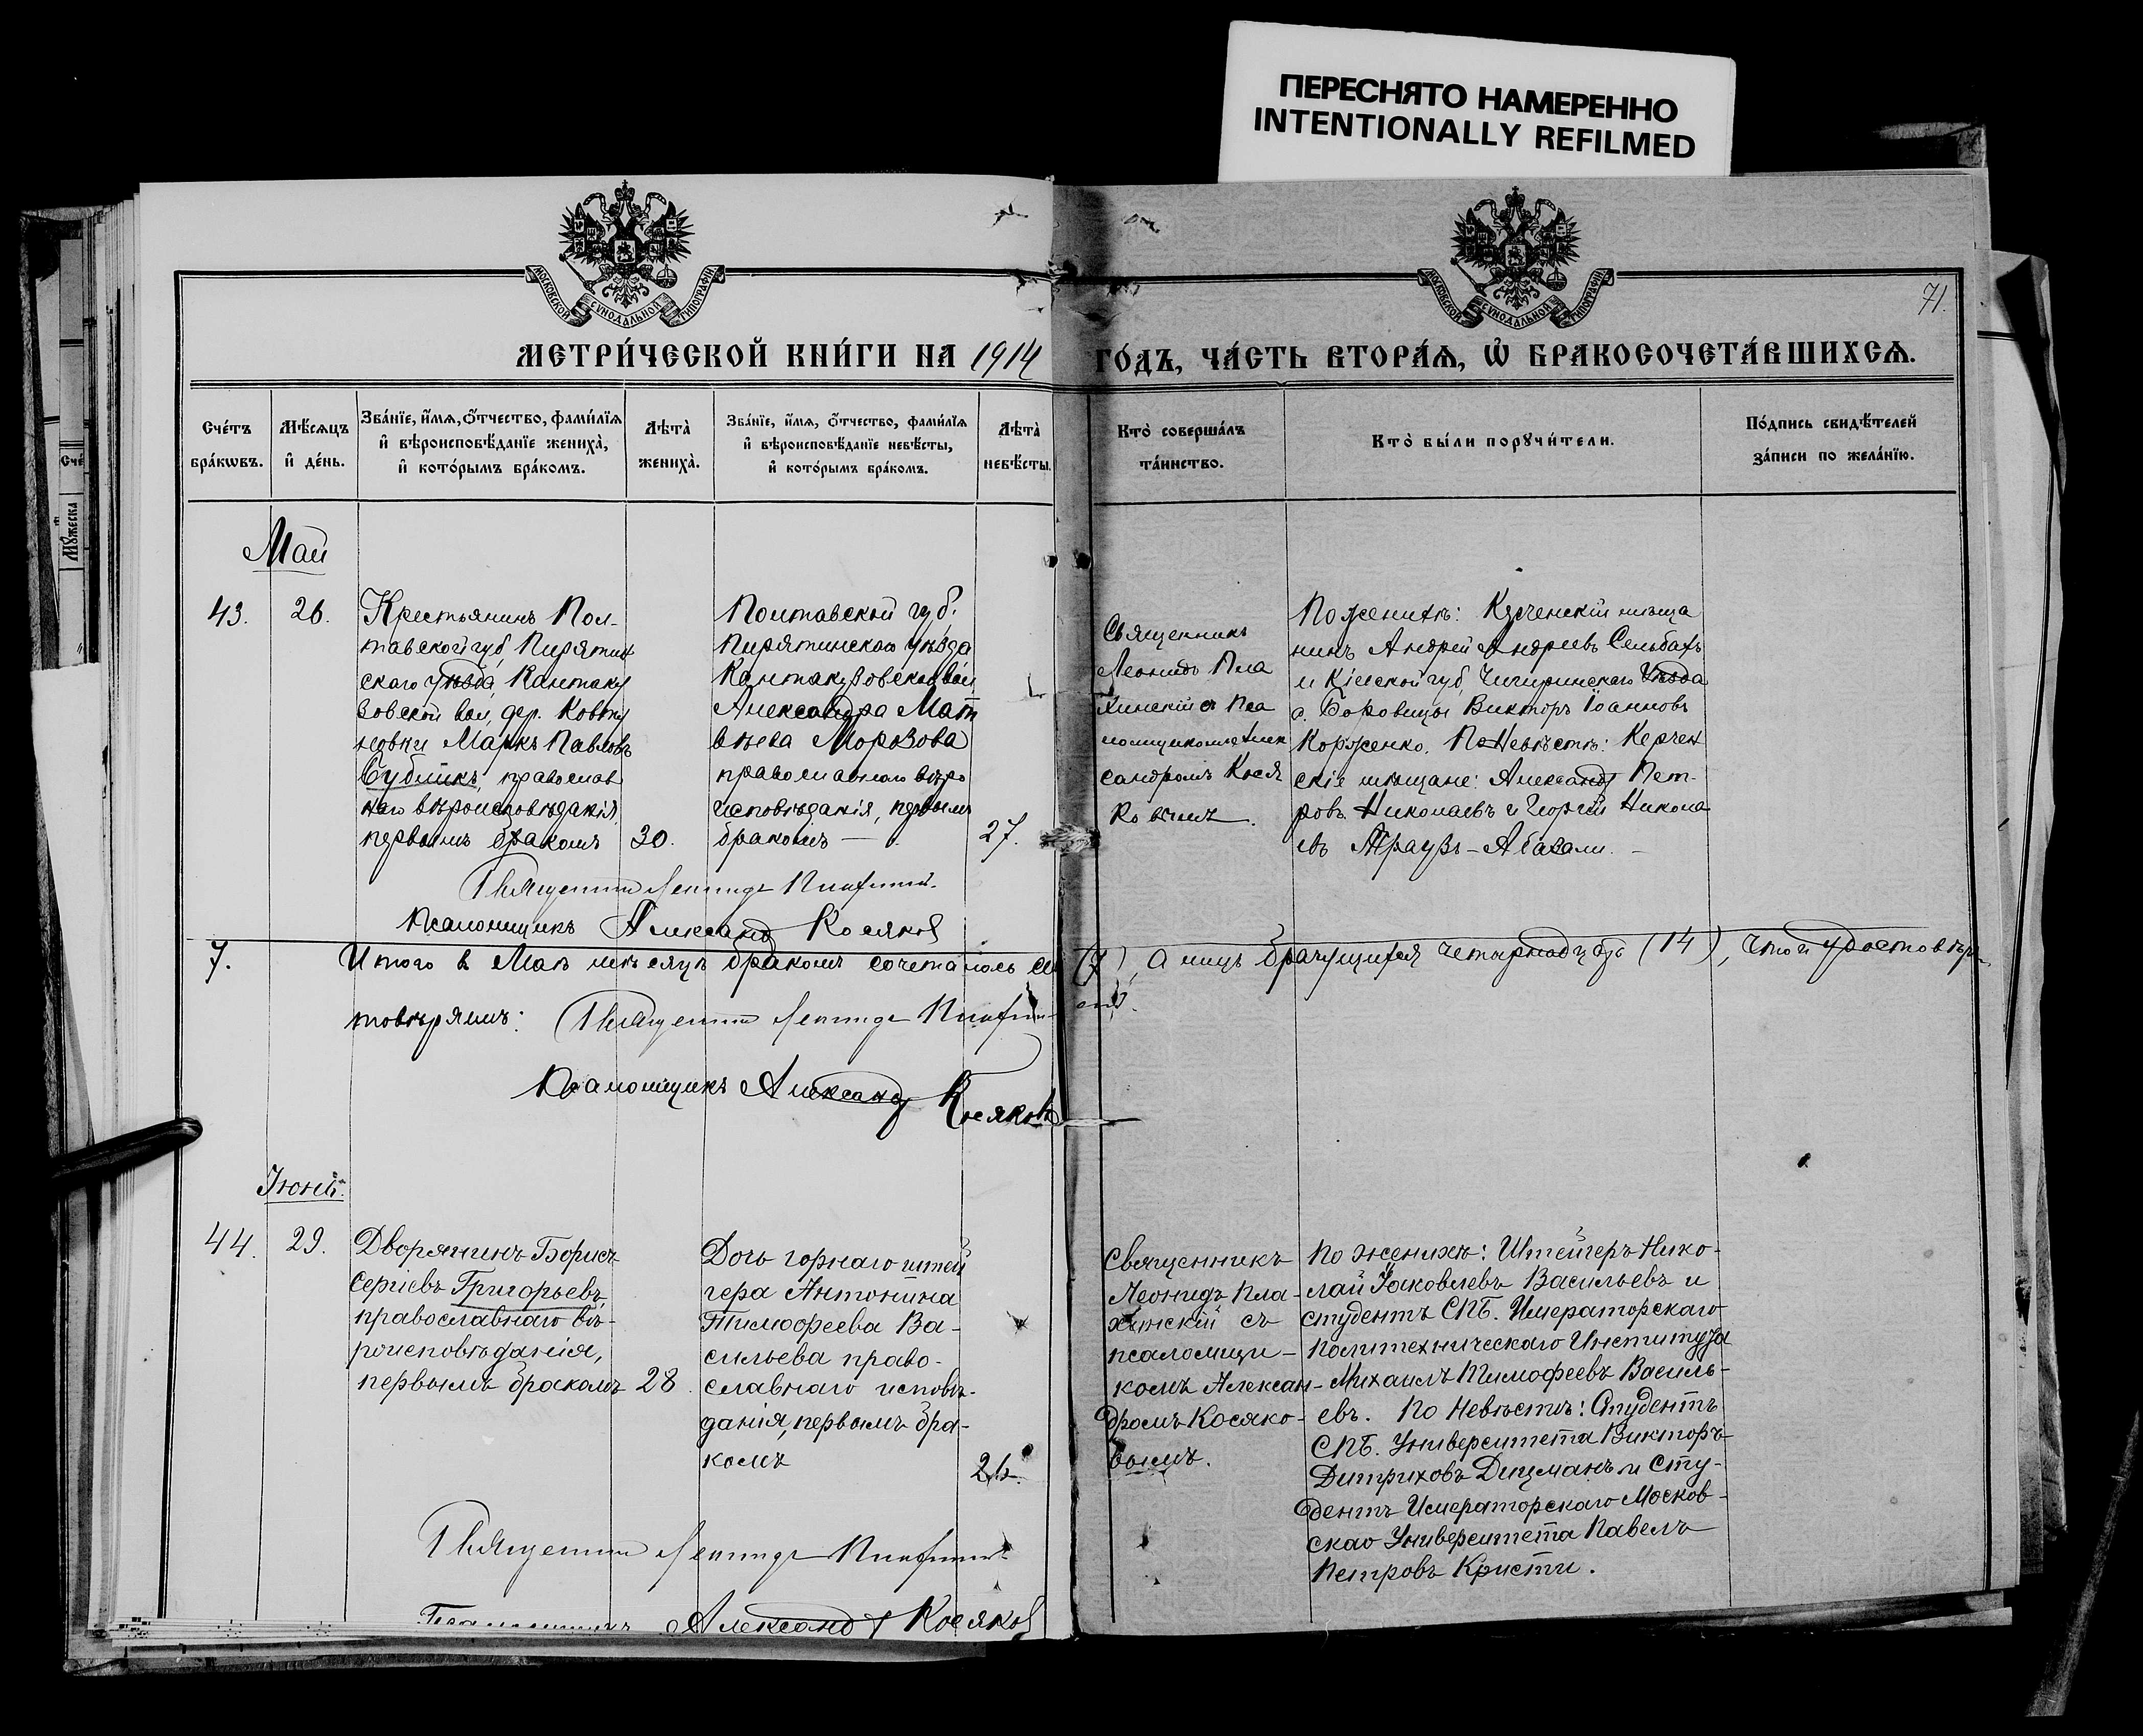 ПЕРЕСНЯТО НАМЕРЕННО
INTENTIONALLY REFILMED
МОСКОВСКОЙ СѴНОДАЛЬНОЙ ТИПОГРАФІИ
МОСКОВСКОЙ СѴНОДАЛЬНОЙ ТИПОГРАФІИ
71.
МЕТРИ́ЧЕСКОЙ КНИ́ГИ НА 1914 ГО́ДЪ, ЧА́СТЬ ВТОРА́Ѧ, Ѡ҆ БРАКОСОЧЕТА́ВШИХСѦ.
Сче́тъ
бра́кѡвъ.
Мѣ́сѧцъ
и҆ де́нь.
Зва́нїе, и҆́мѧ, ѻ҆́тчество, фами́лїѧ
и҆ вѣроисповѣ́данїе жениха̀,
и҆ кото́рымъ бра́комъ.
Лѣта̀
жениха̀.
Зва́нїе, и҆́мѧ, ѻ҆́тчество, фами́лїѧ
и҆ вѣроисповѣ́данїе невѣ́сты,
и҆ кото́рымъ бра́комъ.
Лѣта̀
невѣ́сты.
Кто̀ соверша́лъ
та́инство.
Кто̀ бы́ли порꙋчи́тели.
По́дпись свидѣ́телей
за́писи по жела́нїю.
Май
43.
26.
Крестьянинъ Пол-
тавской губ, Пирятин
скаго уѣзда, Кантаку
зовской вол, дер.
Маркъ Павловъ
православ
наго вѣроисповѣданія,
первымъ бракомъ
30.
Полтавской губ.
Пирятинскаго уѣзда
Кантакузовской вол
Александра Мат
вѣева Морозова
православнаго вѣро
исповѣданія, первымъ
бракомъ —
27.
Священникъ
Леонидъ Пла
хинскій съ Пса
ломщикомъ Алек
сандромъ Кося
ковымъ.
По женихѣ: Керченскій мѣща
нинъ Андрей Андреевъ
и Кіевской губ, Чигиринскаго Уѣзда
с. Боровицы Викторъ Іоанновъ
Корженко. По Невѣстѣ: Керчен
скіе мѣщане: Александръ Пет-
ровъ Николаевъ и Георгій Никола
евъ
Священникъ Леонидъ Плахинскій
Псаломщикъ Александръ Косяковъ
7.
Итого в Маѣ мѣсяцѣ бракомъ сочеталось (7), а лицъ брачущихся четырнадцать (14), что и удостовѣр-
товѣряемъ: Священникъ Леонидъ Плахинскій.
Псаломщикъ Александръ Косяковъ
Іюнь.
44.
29.
Дворянинъ Борисъ
Сергіевъ Григорьевъ,
православнаго вѣ-
роисповѣданія,
первымъ бракомъ
28.
Дочь горнаго штей
гера Антонина
Тимофеева Ва-
сильева право-
славнаго исповѣ-
данія, первымъ бра-
комъ
26.
Священникъ
Леонидъ Пла-
хинскій съ
псаломщи-
комъ Алексан-
дромъ Косяко-
вымъ.
По женихѣ: Штейгеръ Нико-
лай Іаковлевъ Васильевъ и
студентъ СПБ. Императорскаго
Политехническаго Института
Михаилъ Тимофеевъ Василь-
евъ. По Невѣстѣ: Студентъ
СПБ. Университета Викторъ
Дитриховъ Дицманъ и Сту-
дентъ Императорскаго Москов-
скаго Университета Павелъ
Петровъ Кристи.
Священникъ Леонидъ Плахинскій
Псаломщикъ Александръ Косяковъ